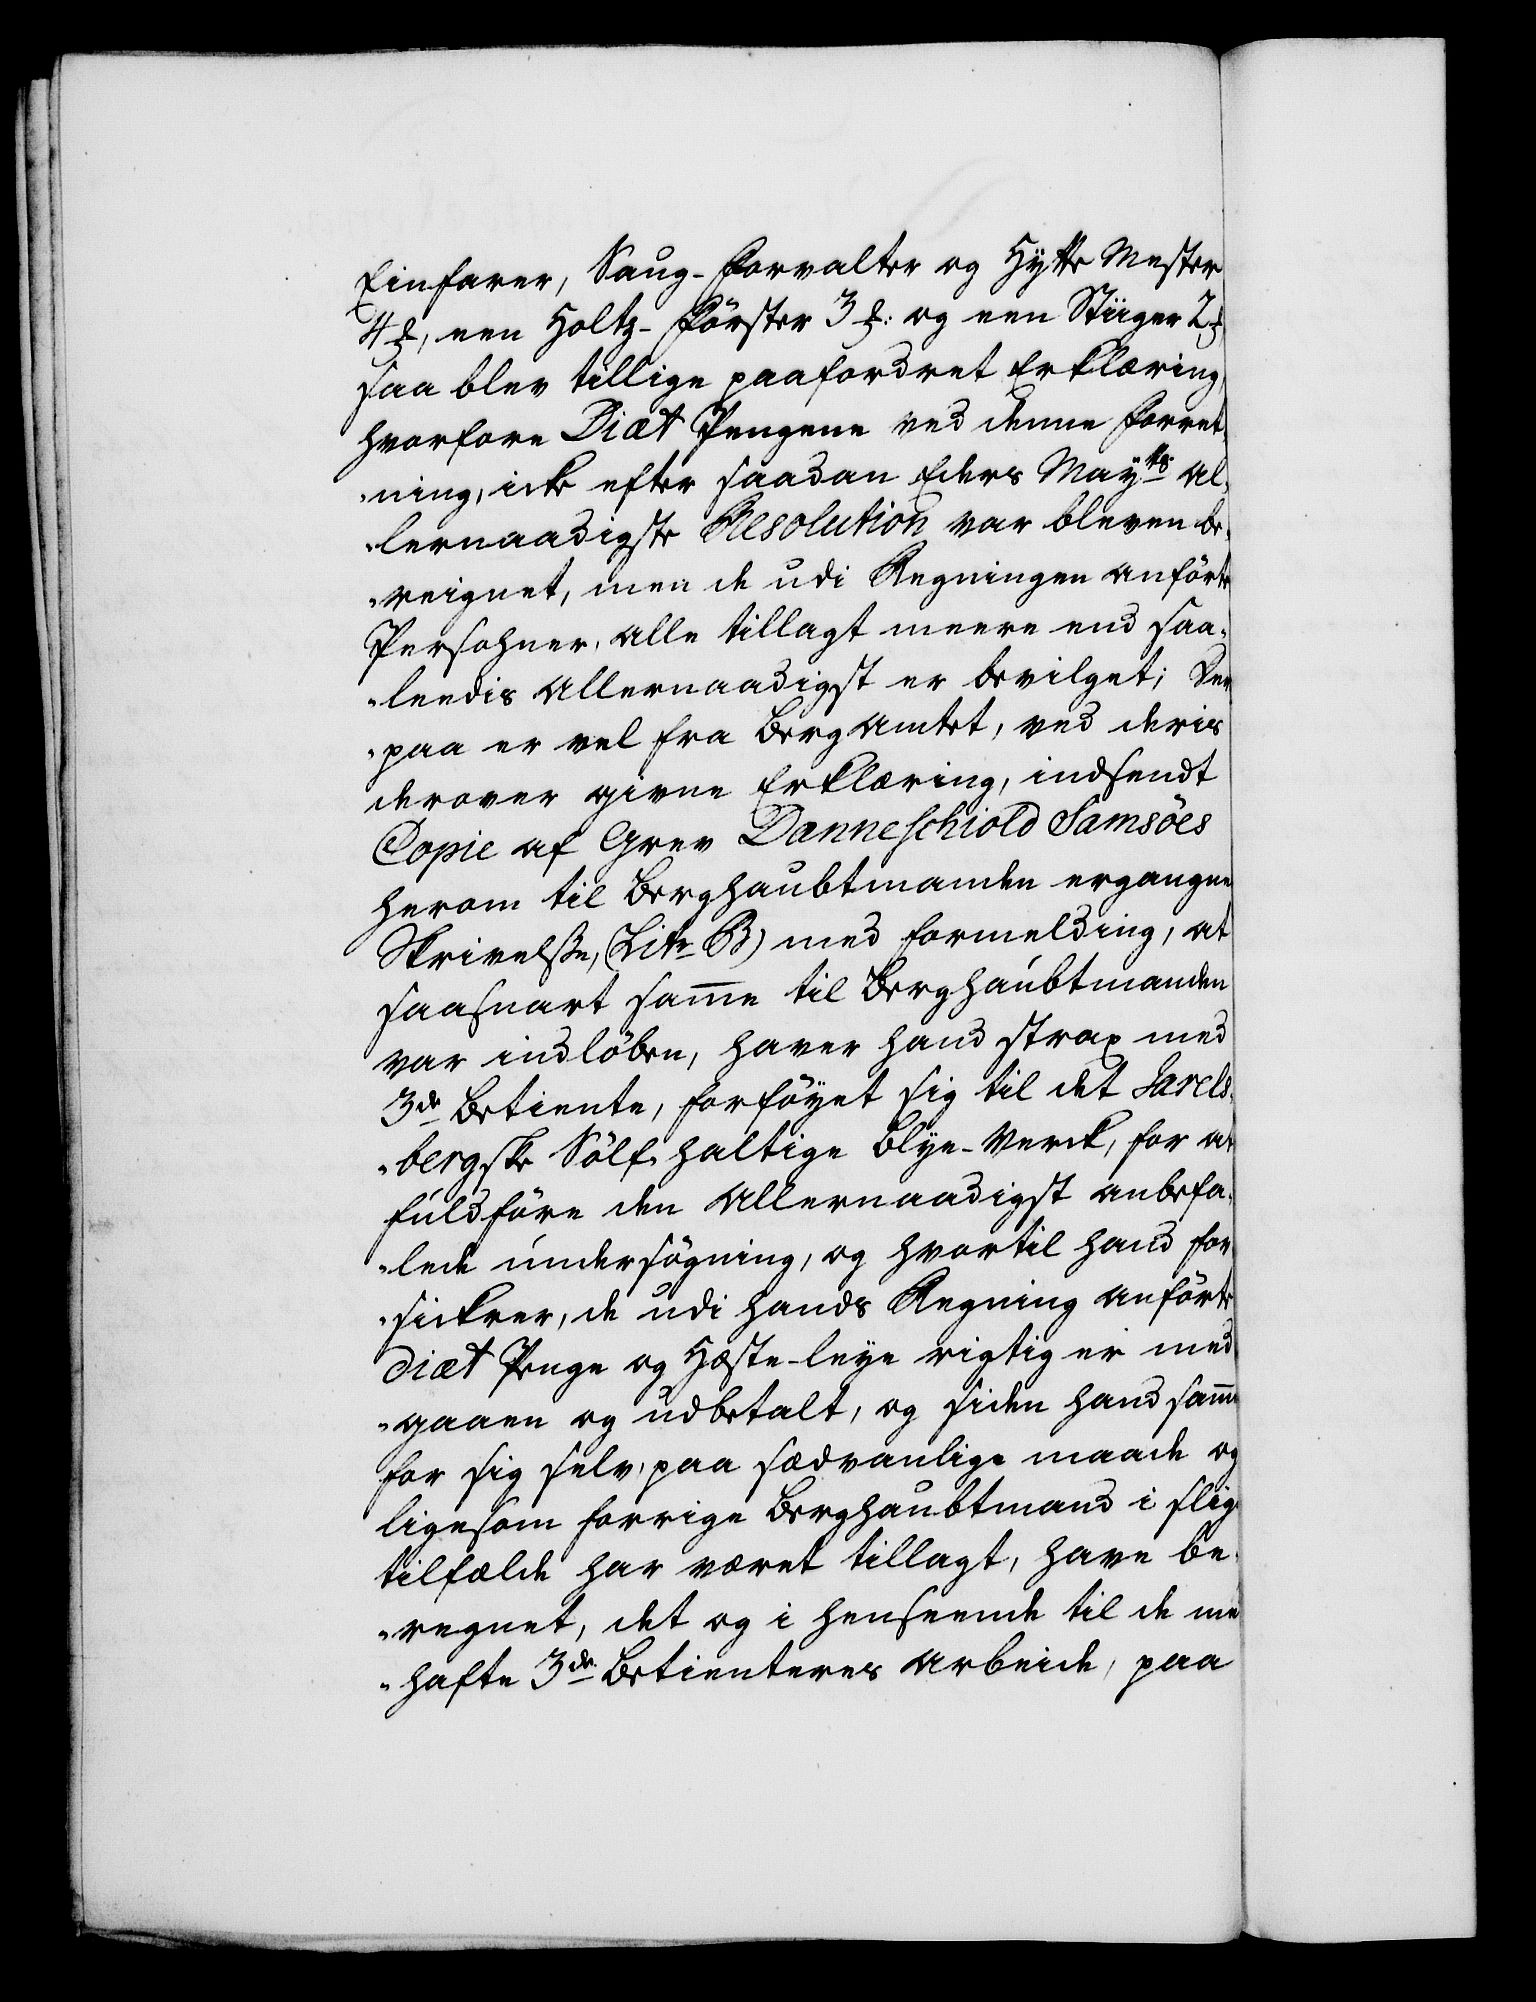 Einfarer, Saug-Forvalter og Hytte Mester
4 ₰, een Holtz-Förster 3 ₰: og een Stüger 2 ₰,
saa blev tillige paafordret Erklæring,
hvorfore Diæt Pengene ved denne Forret-
-ning, icke efter saadan Eders Mayts Al-
-lernaadigste Resolution var bleven be-
-reignet, men de udi Regningen anförte
Persohner, alle tillagt meere end saa-
-leedis Allernaadigst er bevilget; Der
-paa er vel fra BergAmtet, ved deris
derover givne Erklæring, indsendt
Copie af Grev Danneschiold Samsöes
herom til Berghaubtmanden ergangne
Skrivelsse, (Litr B) med formelding, at
saasnart samme til Berghaubtmanden
var indlöben, haver hand strax med
3de Betiente, forföyet sig til det Jarels-
-bergske Sölf-haltige Blye-Verck, for at
fuldföre den Allernaadigst anbefa-
-lede undersögning, og hvortil hand for-
-sickrer, de udi hands Regning anförte
Diæt Penge og Hæste-leye rigtig er med-
-gaaen og udbetalt, og siden hand samme
for sig selv, paa sædvanlige maade og
ligesom forrige Berghaubtmand i slig
tilfælde har været tillagt, have be-
-regnet, det og i henseende til de med
-hafte 3de Betienteres Arbeide, paa